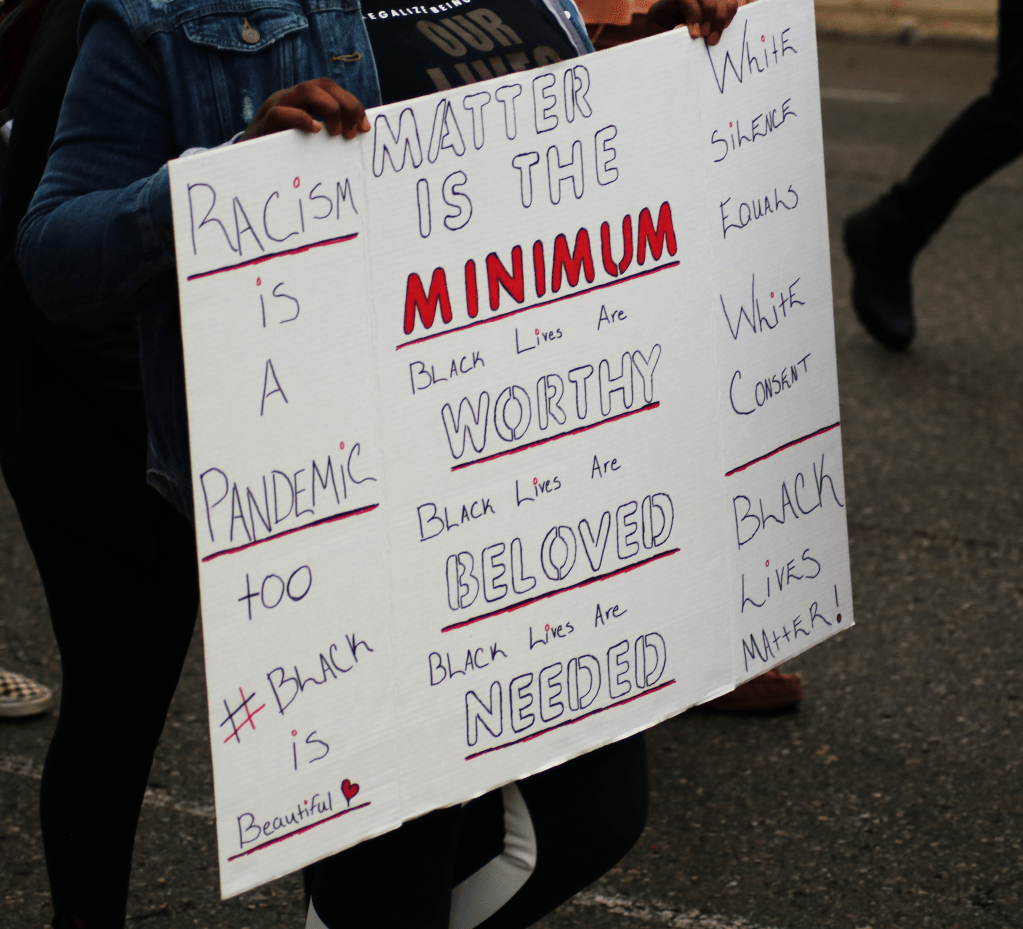 EGALIZEBEING
OUR
LIVES
RACiSM
iS
A
PANDEMiC
too
#BLACK
iS
Beautiful
MATTER
IS THE
MINIMUM
BLACK Lives Are
WORTHY
BLACK Lives Are
BELOVED
BLACK Lives Are
NEEDED
WhitE
SiLENCE
EquALS
WhitE
CONSENT
BLACK
LiVES
MAttER!